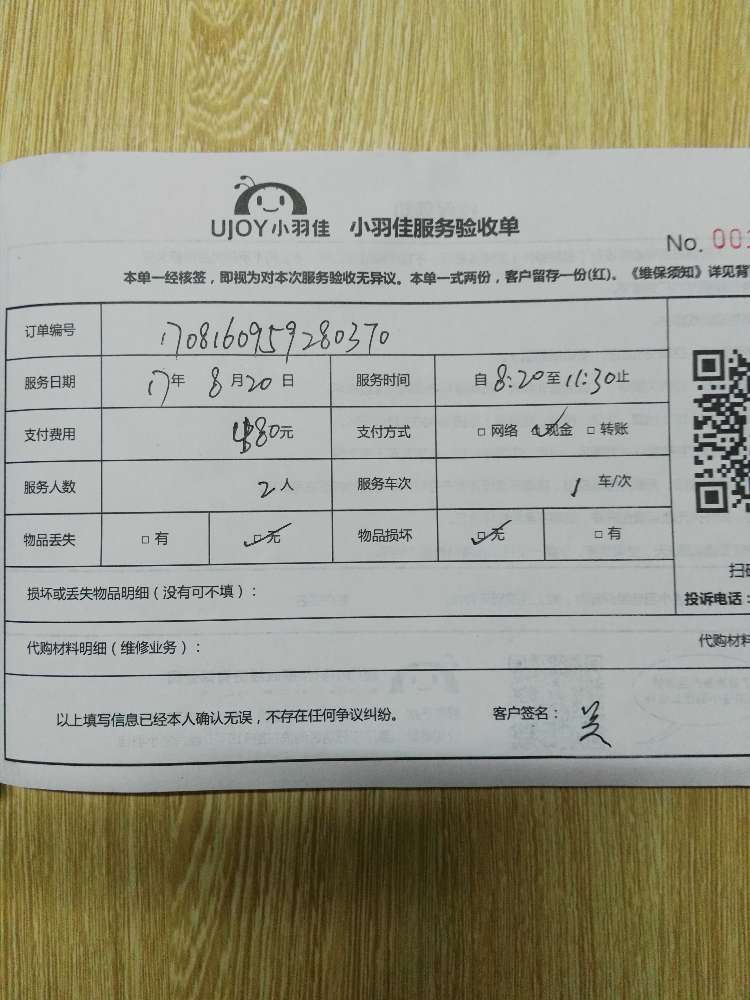 UJOY小羽佳 小羽佳服务验收单
No. 001
本单一经核签，即视为对本次服务验收无异议。本单一式两份，客户留存一份(红)。《维保须知》详见背
订单编号 170816095928​0370
服务日期 17年 8月20日 服务时间 自8:20至11:30止
支付费用 元 支付方式 □ 网络 ☑ 现金 □ 转账
服务人数 2人 服务车次 1 车/次
物品丢失 □ 有 ☑ 无 物品损坏 ☑ 无 □ 有
扫码
损坏或丢失物品明细（没有可不填）：
投诉电话：
代购材料明细（维修业务）：
代购材料
以上填写信息已经本人确认无误，不存在任何争议纠纷。 客户签名：